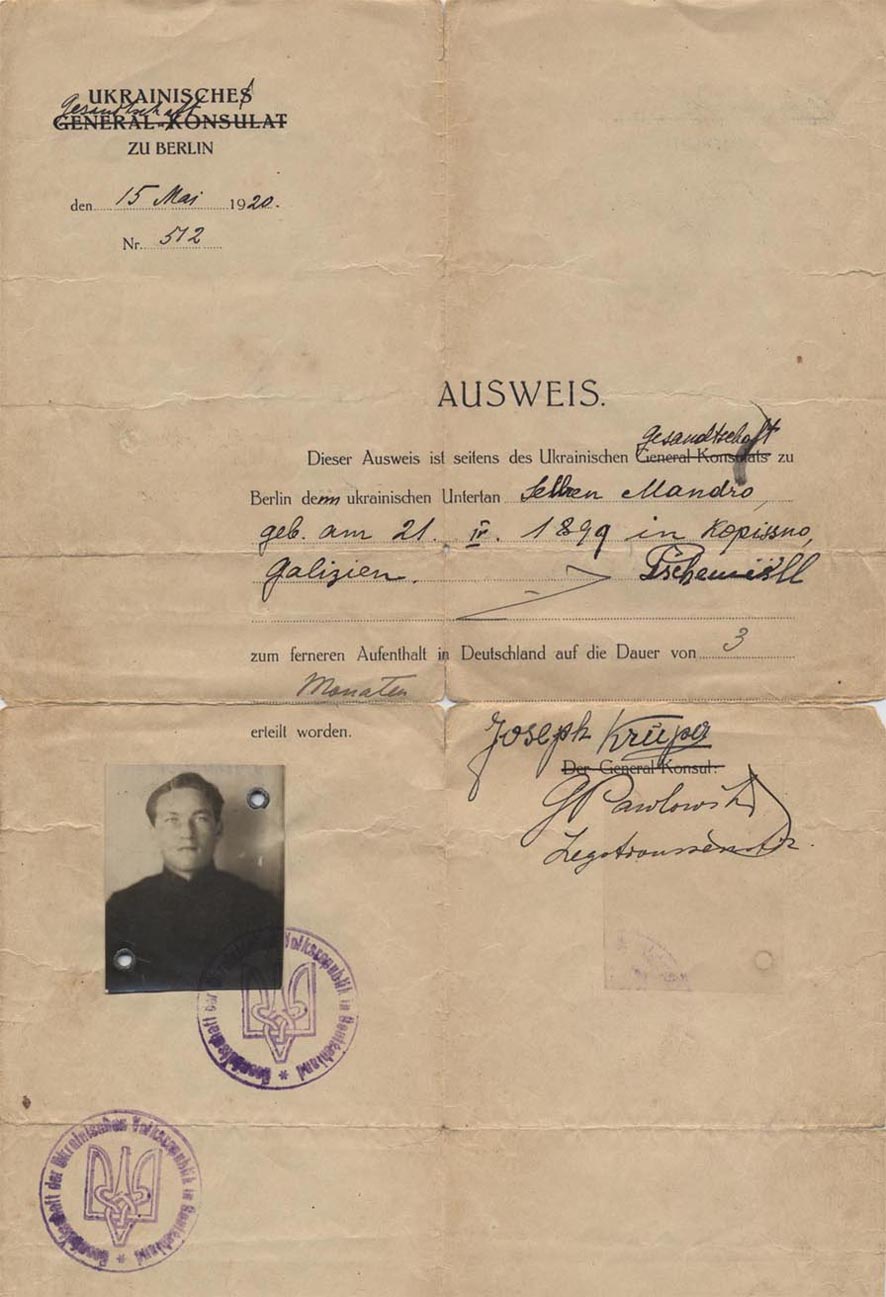 UKRAINISCHES
Gesandtschaft
GENERAL-KONSULAT
ZU BERLIN
den 15 Mai 1920.
Nr. 512
AUSWEIS.
Gesandtschaft
Dieser Ausweis ist seitens des Ukrainischen General-Konsulats zu
Berlin dem ukrainischen Untertan Mandro,
geb. am 21. IV. 1899 in Kopissno,
Galizien. Pschemissll
zum ferneren Aufenthalt in Deutschland auf die Dauer von 3
Monaten
erteilt worden.
Joseph Krupa
Der General-Konsul:
Pawlowski
Gesandtschaft der Ukrainischen Volksrepublik in Deutschland *
Gesandtschaft der Ukrainischen Volksrepublik in Deutschland *